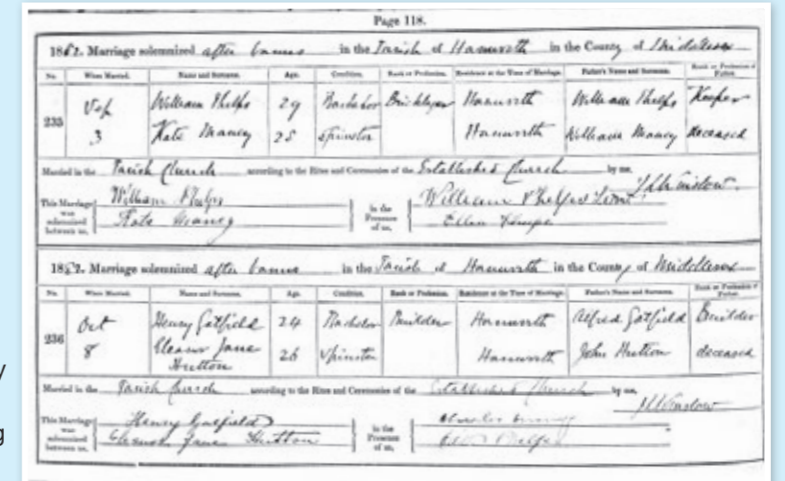 Page 118.
1882. Marriage solemnized after banns in the Parish of Hanworth in the County of Middlesex
No. When Married. Name and Surname. Age. Condition. Rank or Profession. Residence at the Time of Marriage. Father's Name and Surname. Rank or Profession of Father.
235 Sep 3 William Phelps 29 Bachelor Bricklayer Hanworth William Phelps Keeper
Kate Mancy 25 Spinster Hanworth William Mancy deceased
Married in the Parish Church according to the Rites and Ceremonies of the Established Church by me,
This Marriage was solemnized between us, William Phelps Kate Mancy in the Presence of us, William Phelps Ellen
1882. Marriage solemnized after banns in the Parish of Hanworth in the County of Middlesex
No. When Married. Name and Surname. Age. Condition. Rank or Profession. Residence at the Time of Marriage. Father's Name and Surname. Rank or Profession of Father.
236 Oct 8 Henry Gatfield 24 Bachelor Builder Hanworth Alfred Gatfield Builder
Eleanor Jane Hutton 26 Spinster Hanworth John Hutton deceased
Married in the Parish Church according to the Rites and Ceremonies of the Established Church by me,
This Marriage was solemnized between us, Henry Gatfield Eleanor Jane Hutton in the Presence of us, Charles Phelps